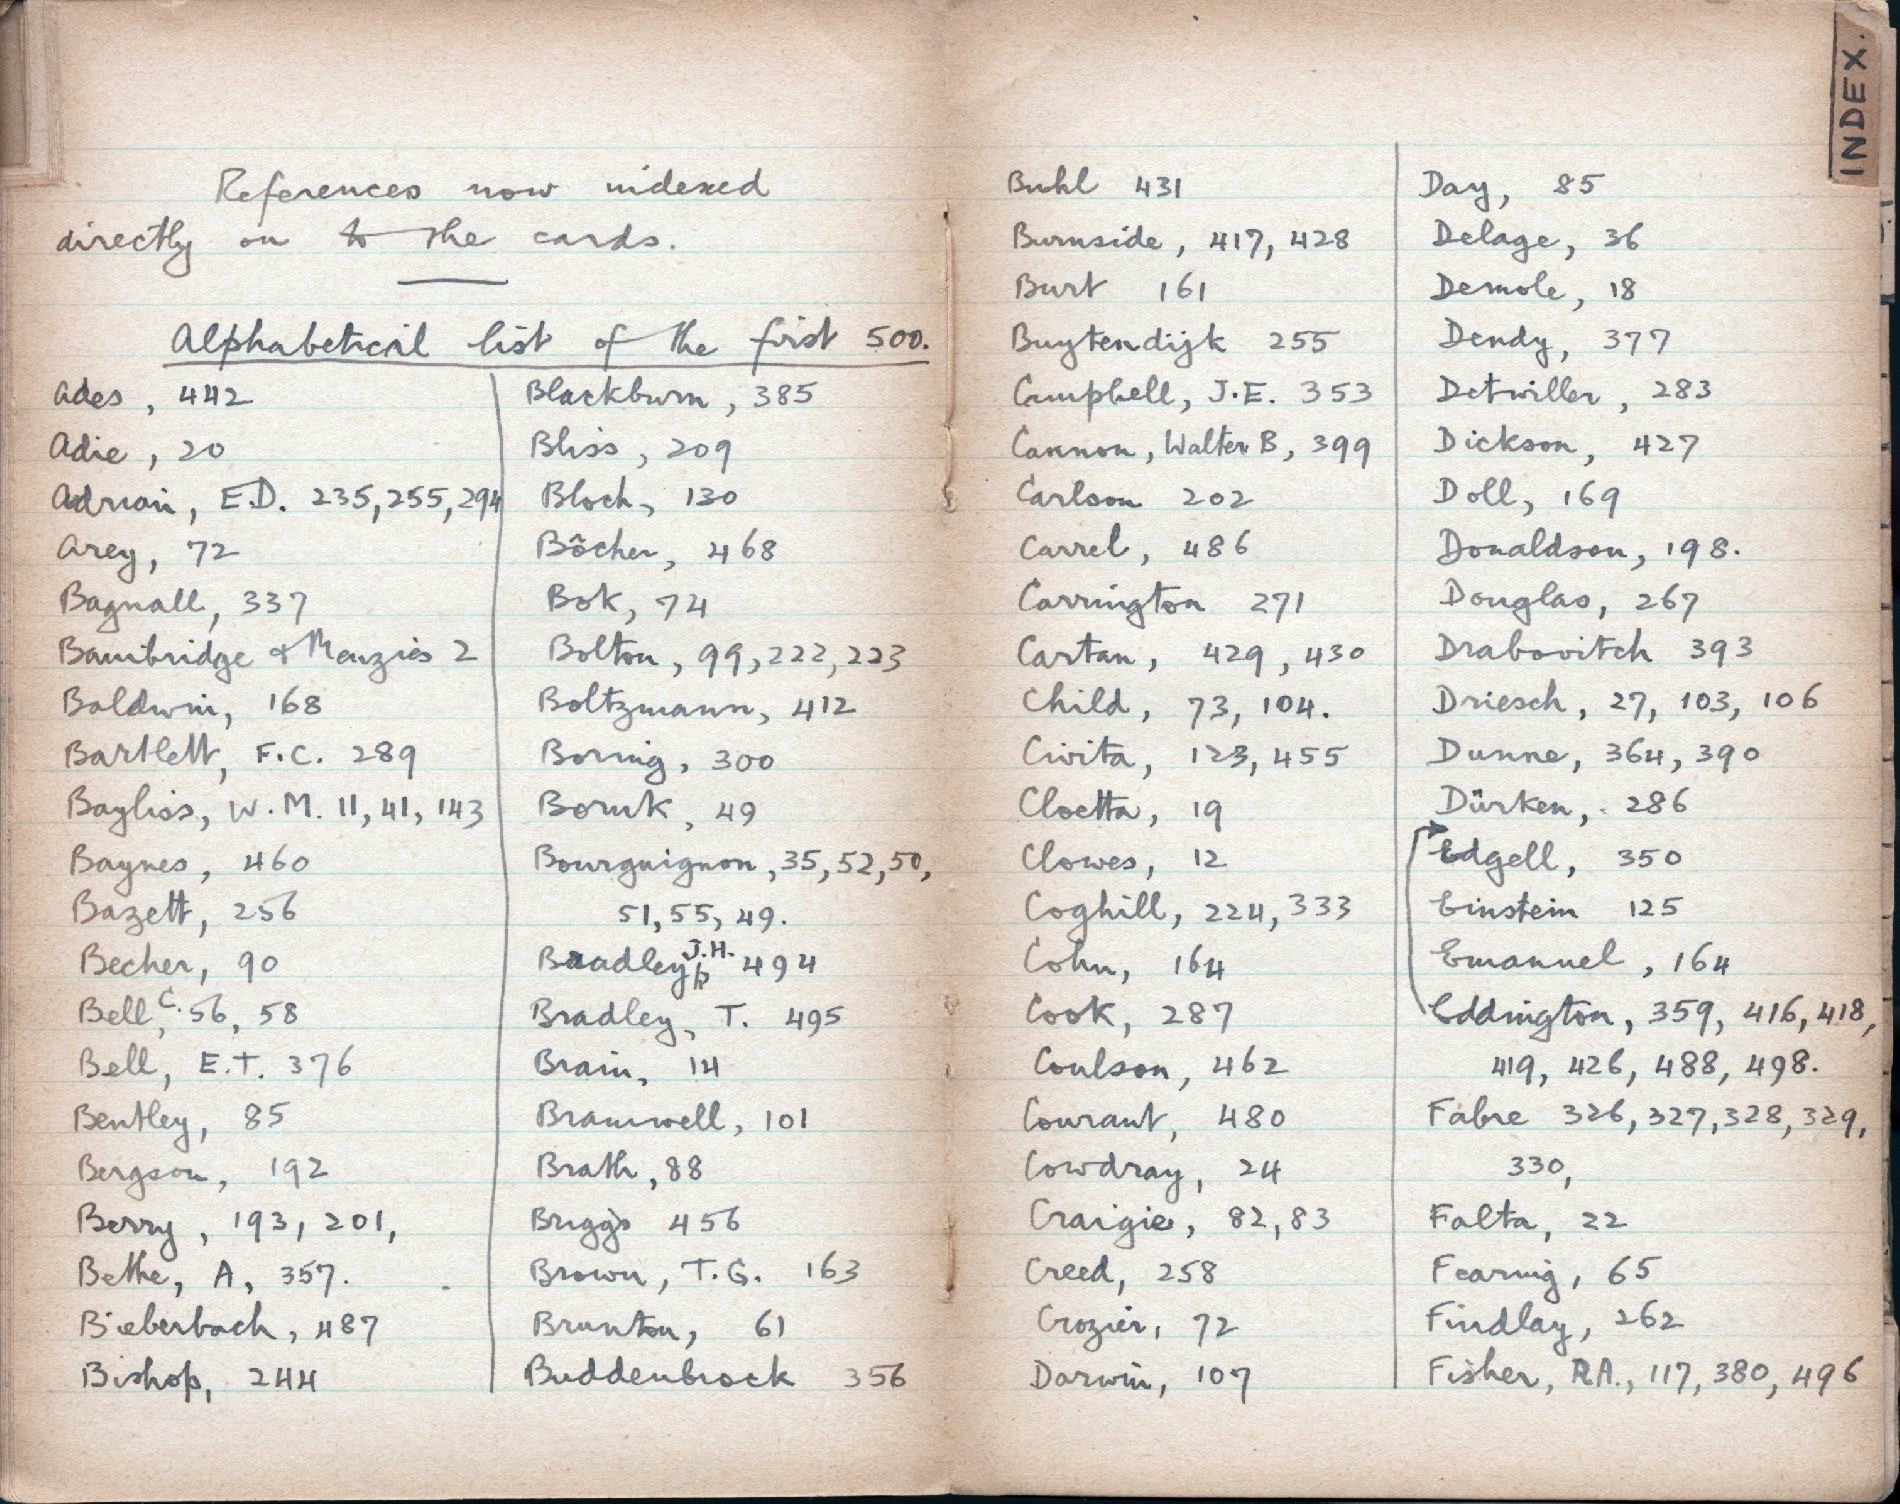 INDEX.
References now indexed
directly on to the cards.
Alphabetical list of the first 500.
Ades, 442
Adie, 20
Adrian, E.D. 235, 255, 294
Arey, 72
Bagnall, 337
Bambridge & Menzies 2
Baldwin, 168
Bartlett, F.C. 289
Bayliss, W.M. 11, 41, 143
Baynes, 460
Bazett, 256
Becher, 90
Bell, C. 56, 58
Bell, E.T. 376
Bentley, 85
Bergson, 192
Berry, 193, 201,
Bethe, A, 357.
Bieberbach, 487
Bishop, 244
Blackburn, 385
Bliss, 209
Bloch, 130
Bôcher, 468
Bok, 74
Bolton, 99, 222, 223
Boltzmann, 412
Boring, 300
Boruk, 49
Bourguignon, 35, 52, 50,
51, 55, 49.
Bradley, J.H. 494
Bradley, T. 495
Brain, 14
Bramwell, 101
Brath, 88
Briggs 456
Brown, T.G. 163
Brunton, 61
Buddenbrock 356
Buhl 431
Burnside, 417, 428
Burt 161
Buytendijk 255
Campbell, J.E. 353
Cannon, Walter B, 399
Carlson 202
Carrel, 486
Carrington 271
Cartan, 429, 430
Child, 73, 104.
Civita, 123, 455
Cloetta, 19
Clowes, 12
Coghill, 224, 333
Cohn, 164
Cook, 287
Coulson, 462
Courant, 480
Cowdray, 24
Craigie, 82, 83
Creed, 258
Crozier, 72
Darwin, 107
Day, 85
Delage, 36
Demole, 18
Dendy, 377
Detwiller, 283
Dickson, 427
Doll, 169
Donaldson, 198.
Douglas, 267
Drabovitch 393
Driesch, 27, 103, 106
Dunne, 364, 390
Dürken, 286
Edgell, 350
Einstein 125
Emanuel, 164
Eddington, 359, 416, 418,
419, 426, 488, 498.
Fabre 326, 327, 328, 329,
330,
Falta, 22
Fearing, 65
Findlay, 262
Fisher, R.A., 117, 380, 496